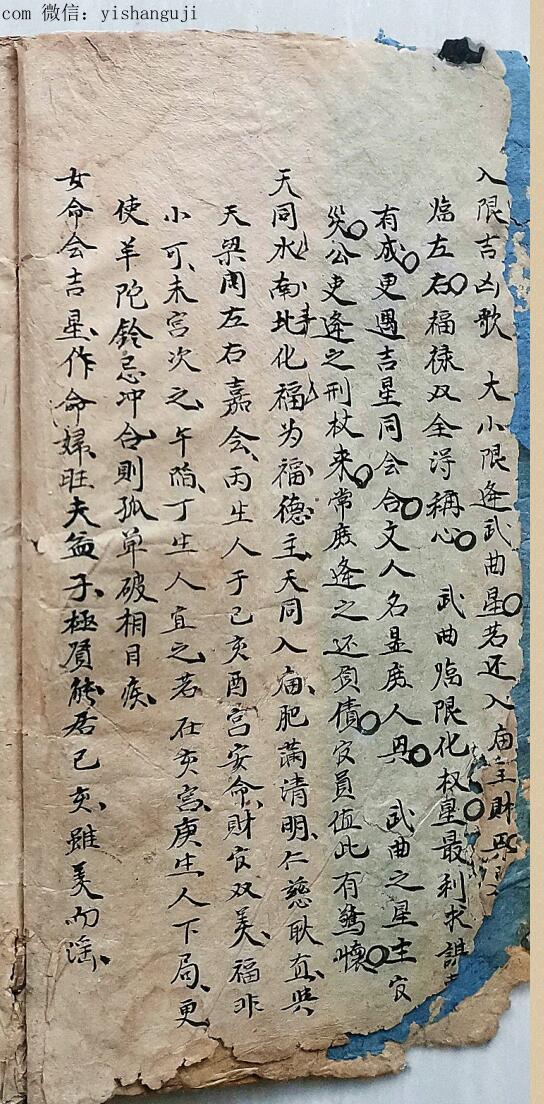 com 微信：yishanguji
入限吉凶歌 大小限逢武曲星若还入庙主財
临左右福禄双全浔称心 武曲临限化权星最利求謀
有成更遇吉星同会合文人名显庶人 武曲之星主官
災公吏逢之刑杖来常庶逢之还负債官員值此有驚懷
天同水南北化福为福德主天同入庙肥滿清明仁慈耿直与
天梁同左右嘉会丙生人于己亥酉宫安命財官双美福非
小可未宫次之午陷丁生人宜之若在亥宫庚生人下局更
使羊陀鈴忌冲合則孤单破相目疾
女命会吉星作命婦旺夫益子極賢能居己亥雖美而淫